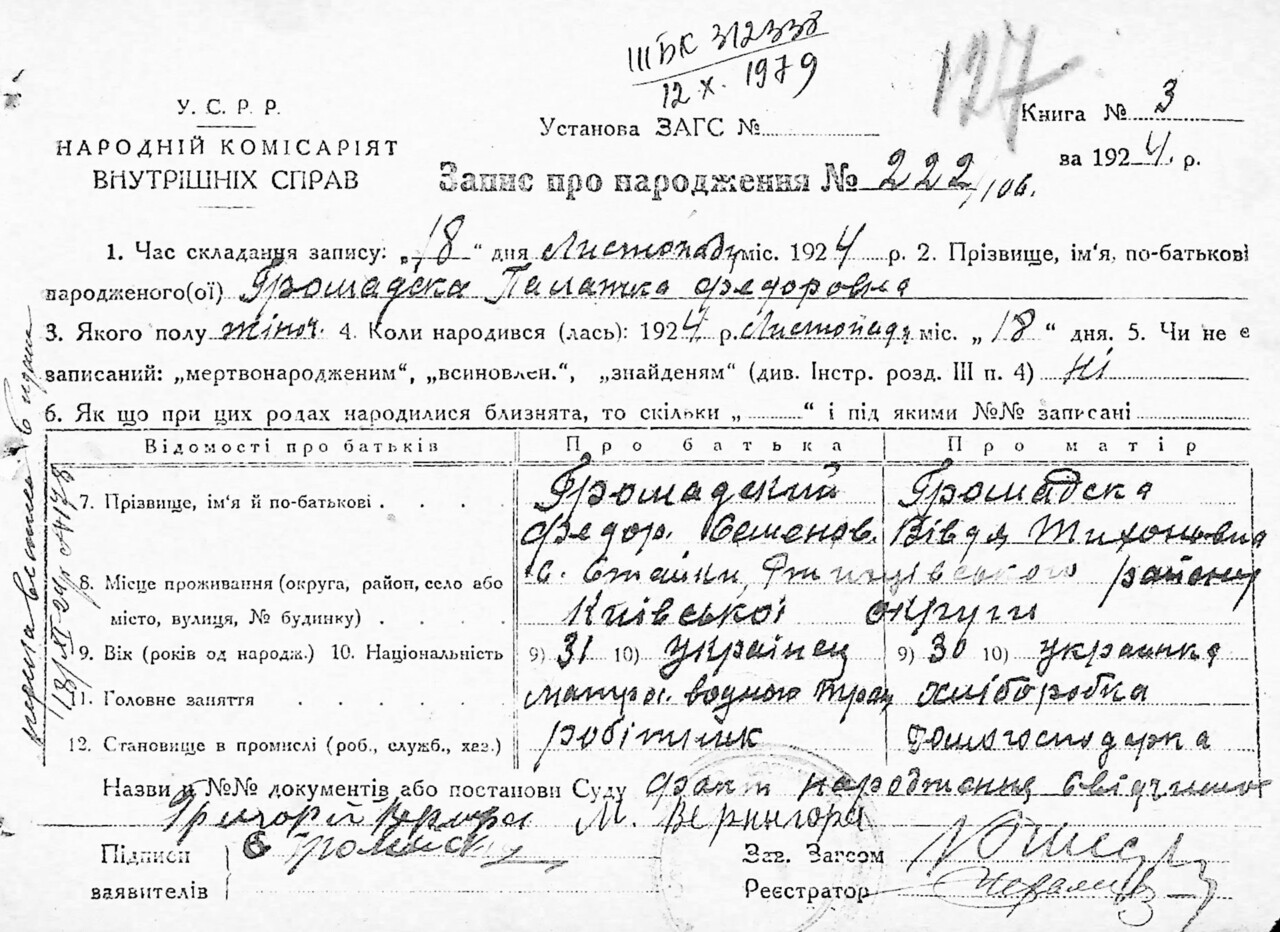 ІІІБК 312338
12 X. 1979
127
У. С. Р. Р.
НАРОДНІЙ КОМІСАРІЯТ
ВНУТРІШНІХ СПРАВ
Установа ЗАГС №
Книга № 3
за 1924. р.
Запис про народження № 222/106.
1. Час складання запису: „18“ дня Листопаду міс. 1924 р. 2. Прізвище, ім‘я, по-батькові
народженого(ої) Громадска Палажка Федоровна
3. Якого полу жіноч. 4. Коли народився (лась): 1924 р. Листопаду міс. „18“ дня. 5. Чи не є
записаний: „мертвонародженим“, „всиновлен.“, „знайденям“ (див. Інстр. розд. III п. 4) Ні
6. Як що при цих родах народилися близнята, то скільки „ “ і під якими №№ записані
Відомості про батьків Про батька Про матір
7. Прізвище, ім‘я й по-батькові Громадский Громадска
Федор. Семенов. Вівдя Тихоновна
8. Місце проживання (округа, район, село або с. Стайки, району
місто, вулиця, № будинку) Київської округи
9. Вік (років од народж.) 10. Національність 9) 31 10) українец 9) 30 10) украинка
11. Головне заняття матрос. водного тран хліборобка
12. Становище в промислі (роб., служб., хаз.) робітник домогосподарка
Назви й №№ документів або постанови Суду факт народження
Григорій М. Вернигора
Підписи
заявителів
Зав. Загсом
Реєстратор